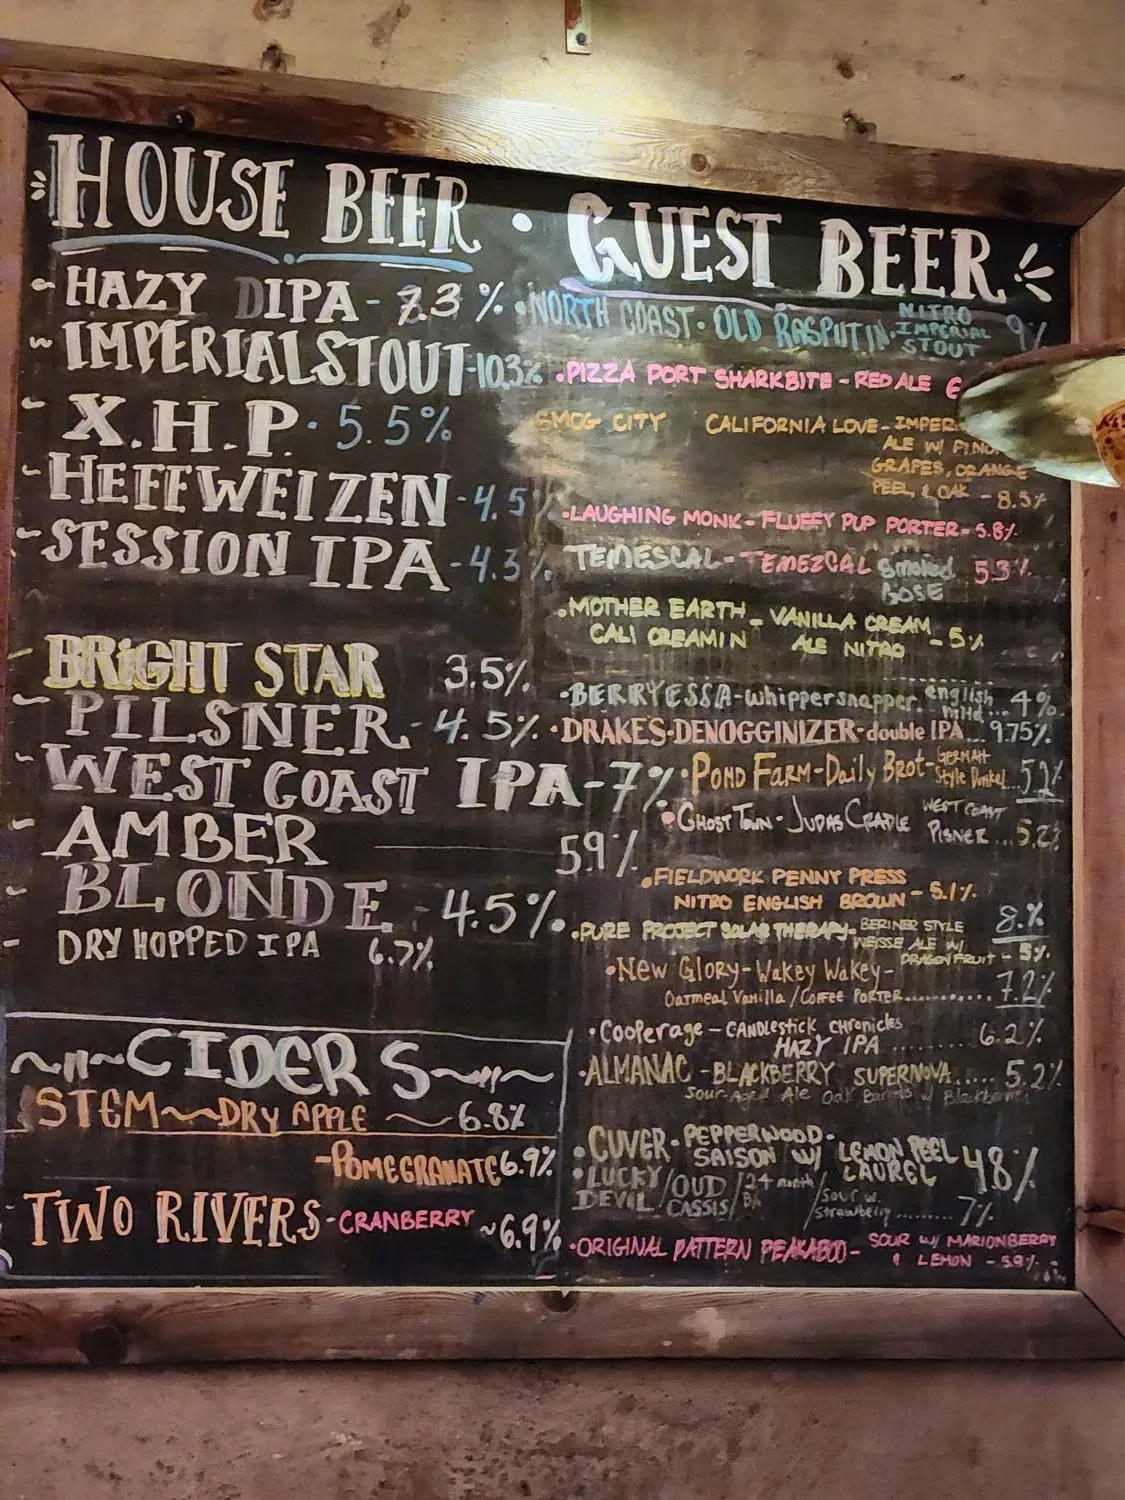 HOUSE BEER · GUEST BEER
~ HAZY DIPA - 7.3%
~ IMPERIAL STOUT - 10.3%
~ X.H.P. · 5.5%
~ HEFEWEIZEN - 4.5%
~ SESSION IPA - 4.3%
BRIGHT STAR 3.5%
~ PILSNER - 4.5%
~ WEST COAST IPA - 7%
~ AMBER 59%
~ BLONDE - 4.5%
- DRY HOPPED IPA 6.7%
~~CIDERS~~
STEM ~~ DRY APPLE ~ 6.8%
- POMEGRANATE 6.9%
TWO RIVERS - CRANBERRY ~ 6.9%
· NORTH COAST · OLD RASPUTIN · NITRO
IMPERIAL
STOUT 9%
· PIZZA PORT SHARKBITE - RED ALE
SMOG CITY CALIFORNIA LOVE - IMPER
ALE W/
GRAPES, ORANGE
PEEL, & OAK - 8.5%
· LAUGHING MONK - FLUFFY PUP PORTER - 5.8%
TEMESCAL - TEMEZCAL Smoked 5.3%
GOSE
· MOTHER EARTH - VANILLA CREAM
CALI CREAMIN ALE NITRO - 5%
· BERRYESSA - whippersnapper english
mild ... 4%
· DRAKES · DENOGGINIZER - double IPA ... 9.75%
· POND FARM - Daily Brot - GERMAN
Style Dunkel ... 5.2%
· GHOST TOWN - JUDAS CRADLE WEST COAST
PILSNER ... 5.2%
· FIELDWORK PENNY PRESS
NITRO ENGLISH BROWN - 5.1%
8.%
· PURE PROJECT SOLAR THERAPY - BERINER STYLE
WEISSE ALE W/
DRAGONFRUIT - 5%
· New Glory - Wakey Wakey -
Oatmeal Vanilla / Coffee PORTER ............ 7.2%
· Cooperage - CANDLESTICK chronicles
HAZY IPA .......... 6.2%
· ALMANAC - BLACKBERRY SUPERNOVA ..... 5.2%
Sour-Aged Ale Oak Barrels w/ Blackberries
· CUVER · PEPPERWOOD -
SAISON W/ LEMON PEEL
LAUREL 48%
· LUCKY
DEVIL / OUD
CASSIS / 24 month / Sour w.
Strawberry ........ 7%
· ORIGINAL PATTERN PEAKABOO - SOUR W/ MARIONBERRY
& LEMON - 5.9%